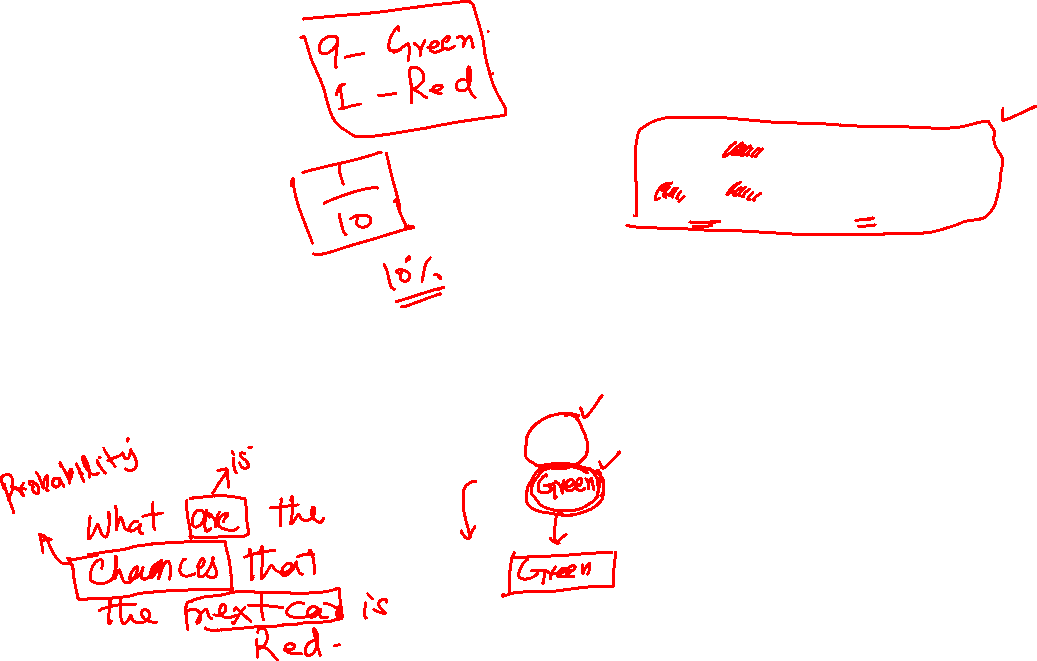 9- Green
1 - Red
1
10
10%
Probability
is
What are the
Chances that
the next car is
Red.
Green
Green